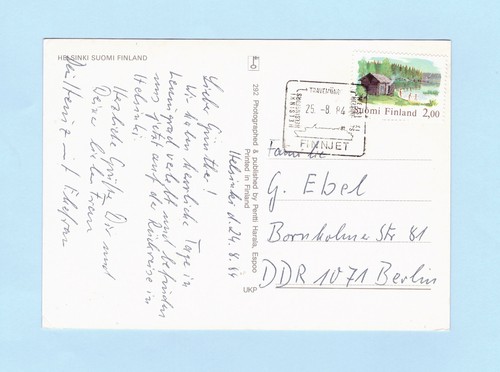 HELSINKI SUOMI FINLAND
Helsinki d. 24.8.84
Liebe Günther!
Wir haben herrliche Tage in
Leningrad verlebt und befinden
uns jetzt auf der Rückreise in
Helsinki
Herzliche Grüße Dir und
Deiner lieben Frau
mit Ehefrau
292 Photographed & published by Pentti Harala, Espoo
Printed in Finland
UKP
TRAVEMÜNDE
25.-8.84
HELSINKI
FINNJET
Suomi Finland 2,00
Familie
G. Ebel
Bornholmer Str 81
DDR 1071 Berlin